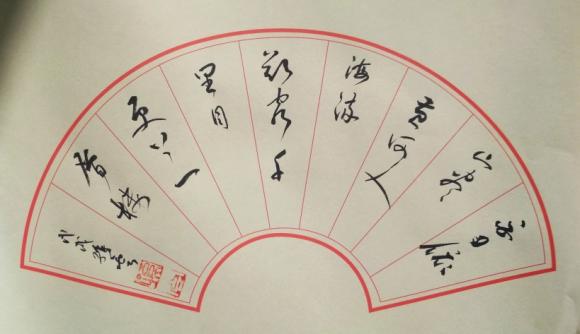 白日依
山尽
黄河入
海流
欲穷千
里目
更上一
层楼
戊戌